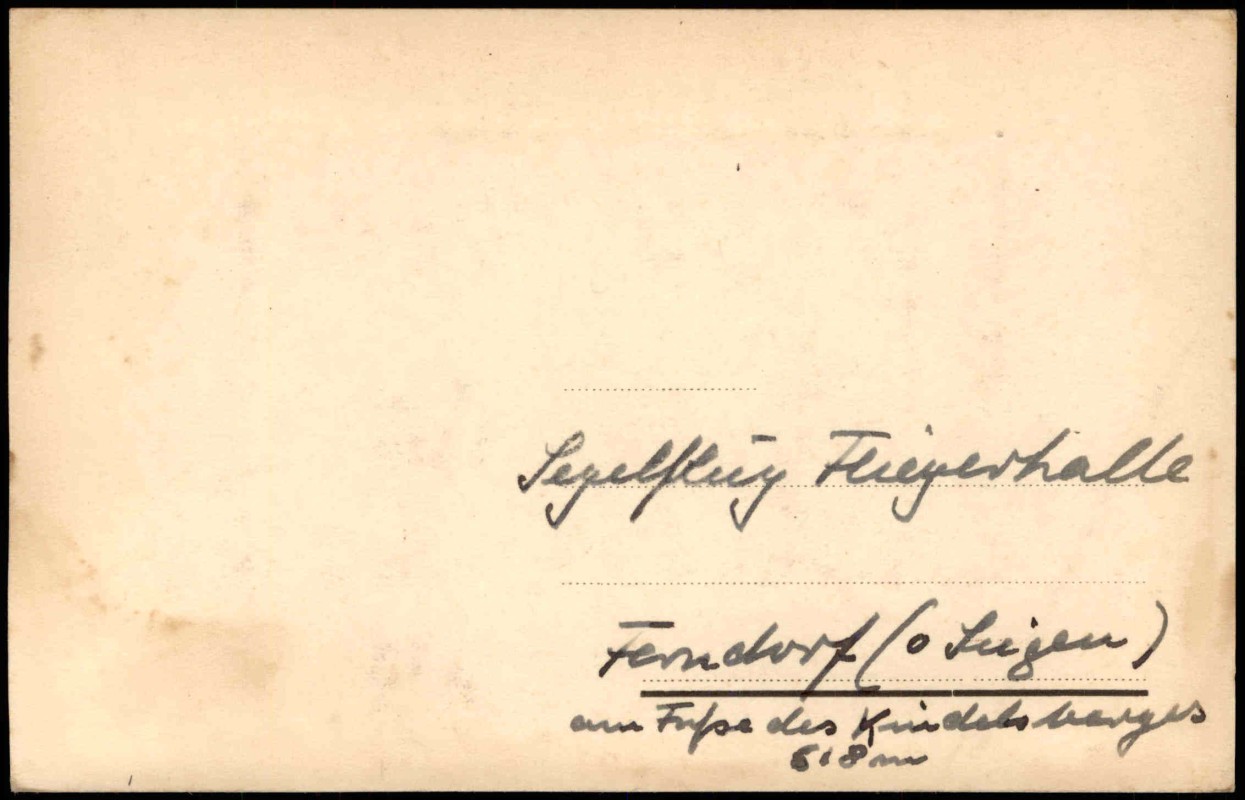 Segelflug Fliegerhalle
Ferndorf (o Siegen)
am Fuße des Kindelsberges
618 m